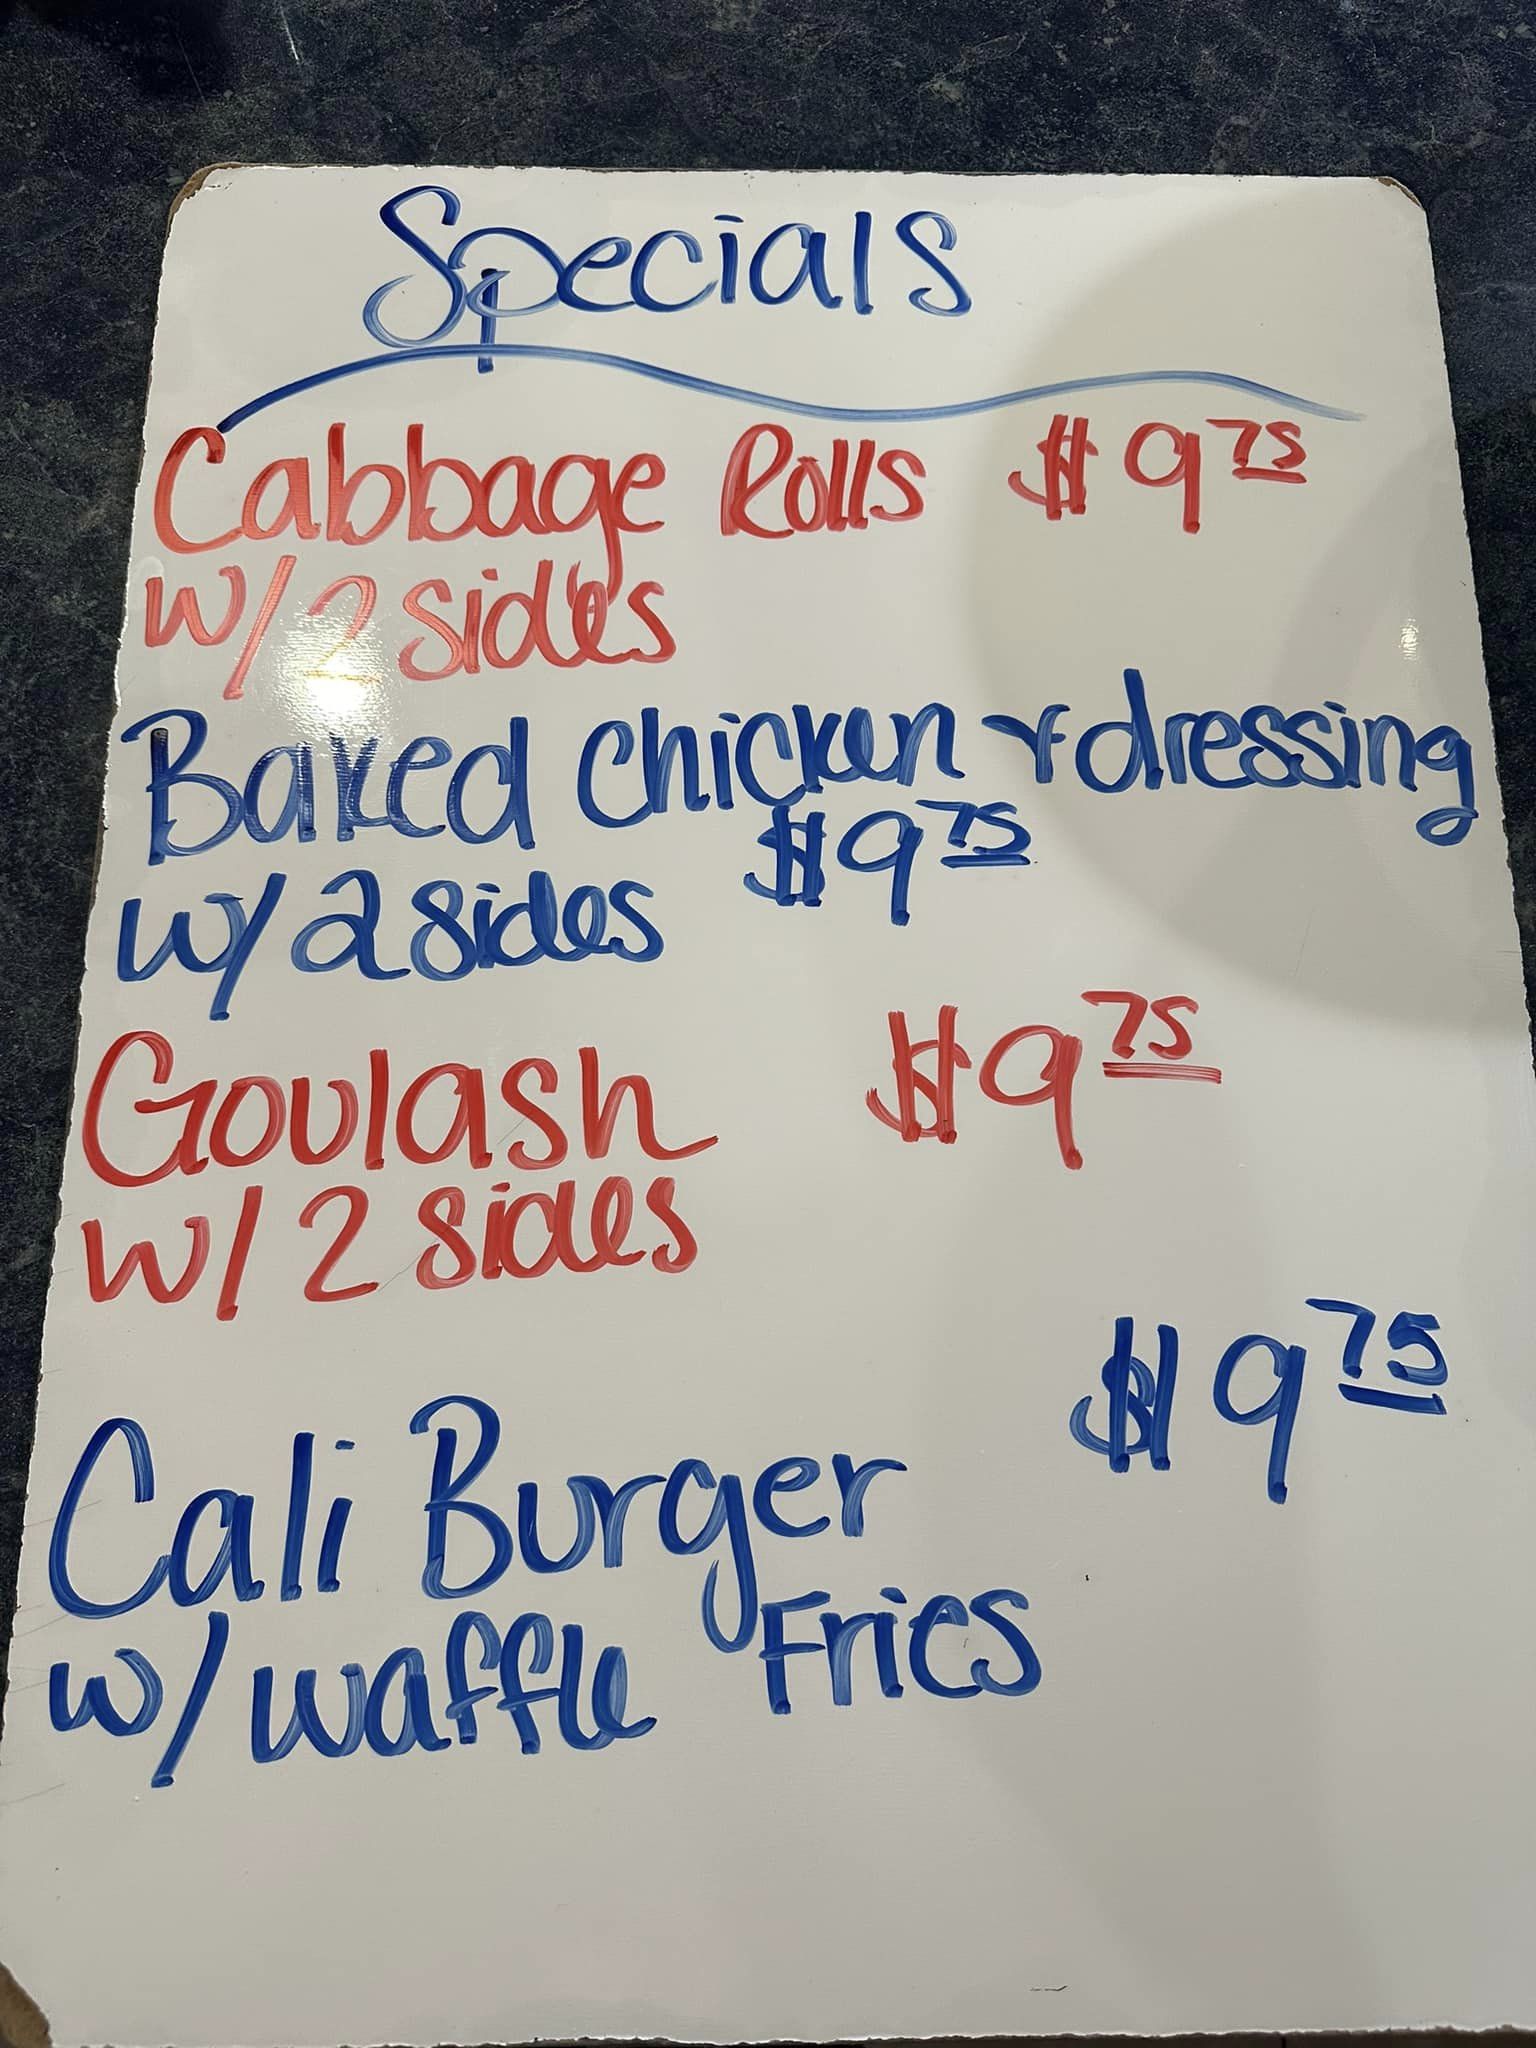 Specials
Cabbage Rolls $9.75
w/ 2 sides
Baked Chicken & dressing
$9.75
w/ 2 sides
Goulash $9.75
w/ 2 sides
$9.75
Cali Burger
w/ waffle Fries